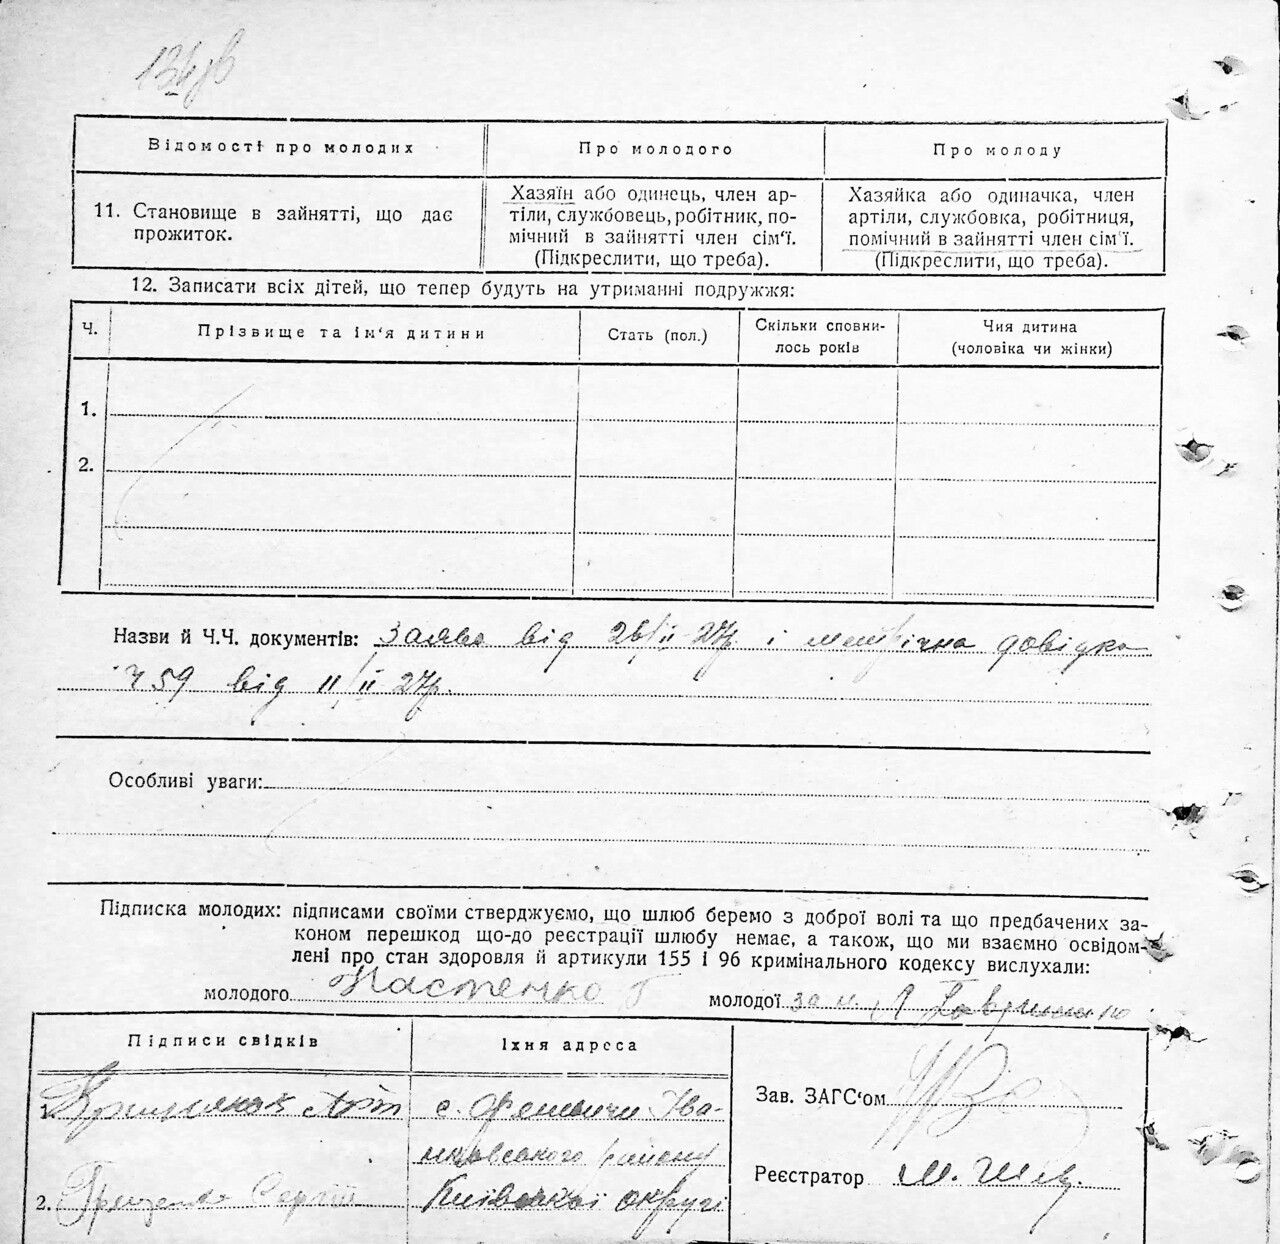 134 зв
Відомості про молодих
Про молодого
Про молоду
11. Становище в зайнятті, що дає
прожиток.
Хазяїн або одинець, член ар-
тіли, службовець, робітник, по-
мічний в зайнятті член сім'ї.
(Підкреслити, що треба).
Хазяйка або одиначка, член
артіли, службовка, робітниця,
помічний в зайнятті член сім'ї.
(Підкреслити, що треба).
12. Записати всіх дітей, що тепер будуть на утриманні подружжя:
Ч.
Прізвище та ім'я дитини
Стать (пол.)
Скільки сповни-
лось років
Чия дитина
(чоловіка чи жінки)
1.
2.
Назви й Ч.Ч. документів: Заява від 26/ІІ 27р. і метрічна довідка
Ч 59 від 11/ІІ 27р.
Особливі уваги:
Підписка молодих: підписами своїми стверджуємо, що шлюб беремо з доброї волі та що предбачених за-
коном перешкод що-до реєстрації шлюбу немає, а також, що ми взаємно освідом-
лені про стан здоровля й артикули 155 і 96 кримінального кодексу вислухали:
молодого Пастенко Г
молодої за н. Гавриленко
Підписи свідків
Їхня адреса
1. Арт
с. Феневичи Іва-
нковського району
2. Грищенко Сергій
Київської округи
Зав. ЗАГС'ом
Реєстратор М.